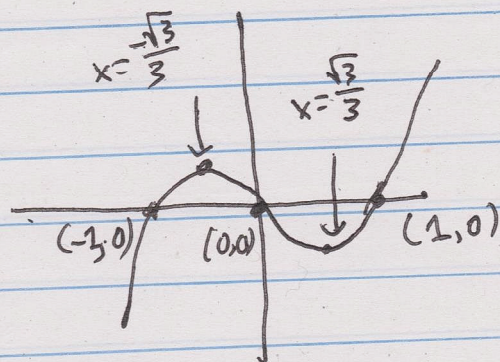 x = -√3/3
x = √3/3
(-1,0)
(0,0)
(1,0)